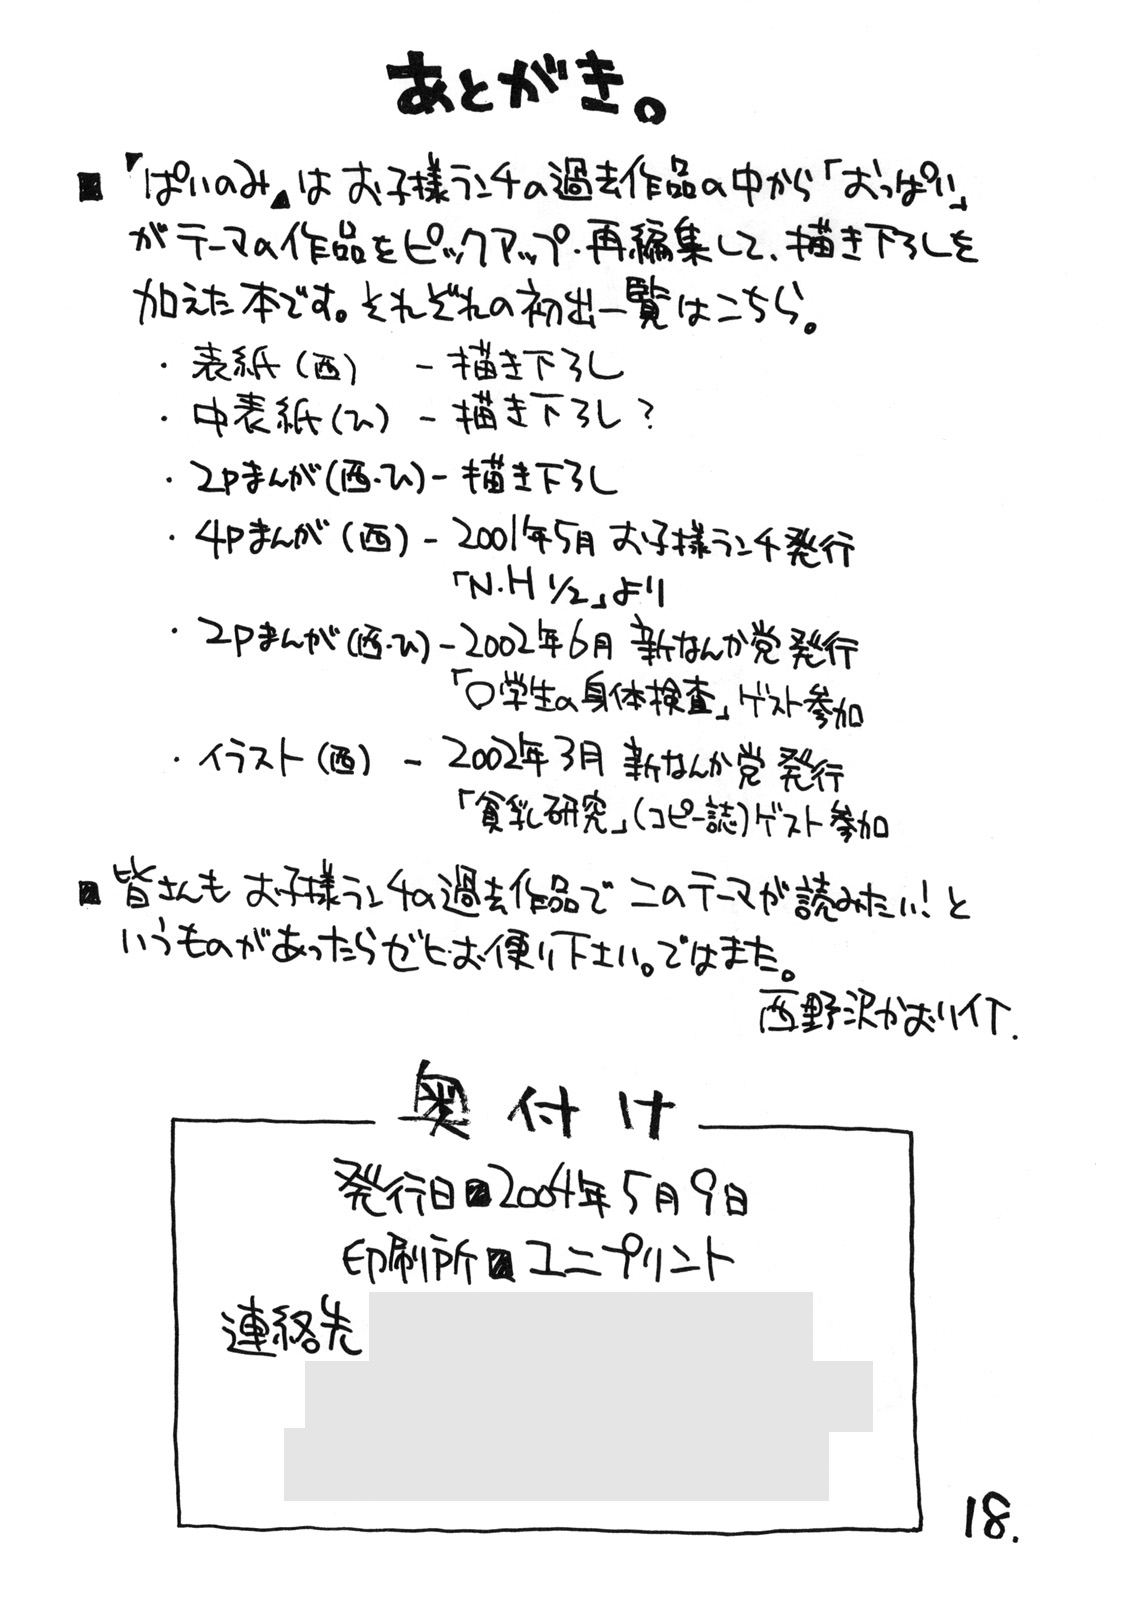 あとがき。
■『ぱいのみ』は お子様ランチの過去作品の中から「おっぱい」
がテーマの作品をピックアップ・再編集して、描き下ろしを
加えた本です。それぞれの初出一覧はこちら。
・表紙(西) - 描き下ろし
・中表紙(ひ) - 描き下ろし?
・2Pまんが(西・ひ) - 描き下ろし
・4Pまんが(西) - 2001年5月 お子様ランチ発行
「N・H 1/2」より
・2Pまんが(西・ひ) - 2002年6月 新なんか党発行
「○学生の身体検査」ゲスト参加
・イラスト(西) - 2002年3月 新なんか党 発行
「貧乳研究」(コピー誌)ゲスト参加
■皆さんも お子様ランチの過去作品で このテーマが読みたい!と
いうものがあったらゼヒお便り下さい。ではまた。
西野沢かおりイ下.
奥付け
発行日■2004年5月9日
印刷所■ユニプリント
連絡先
18.